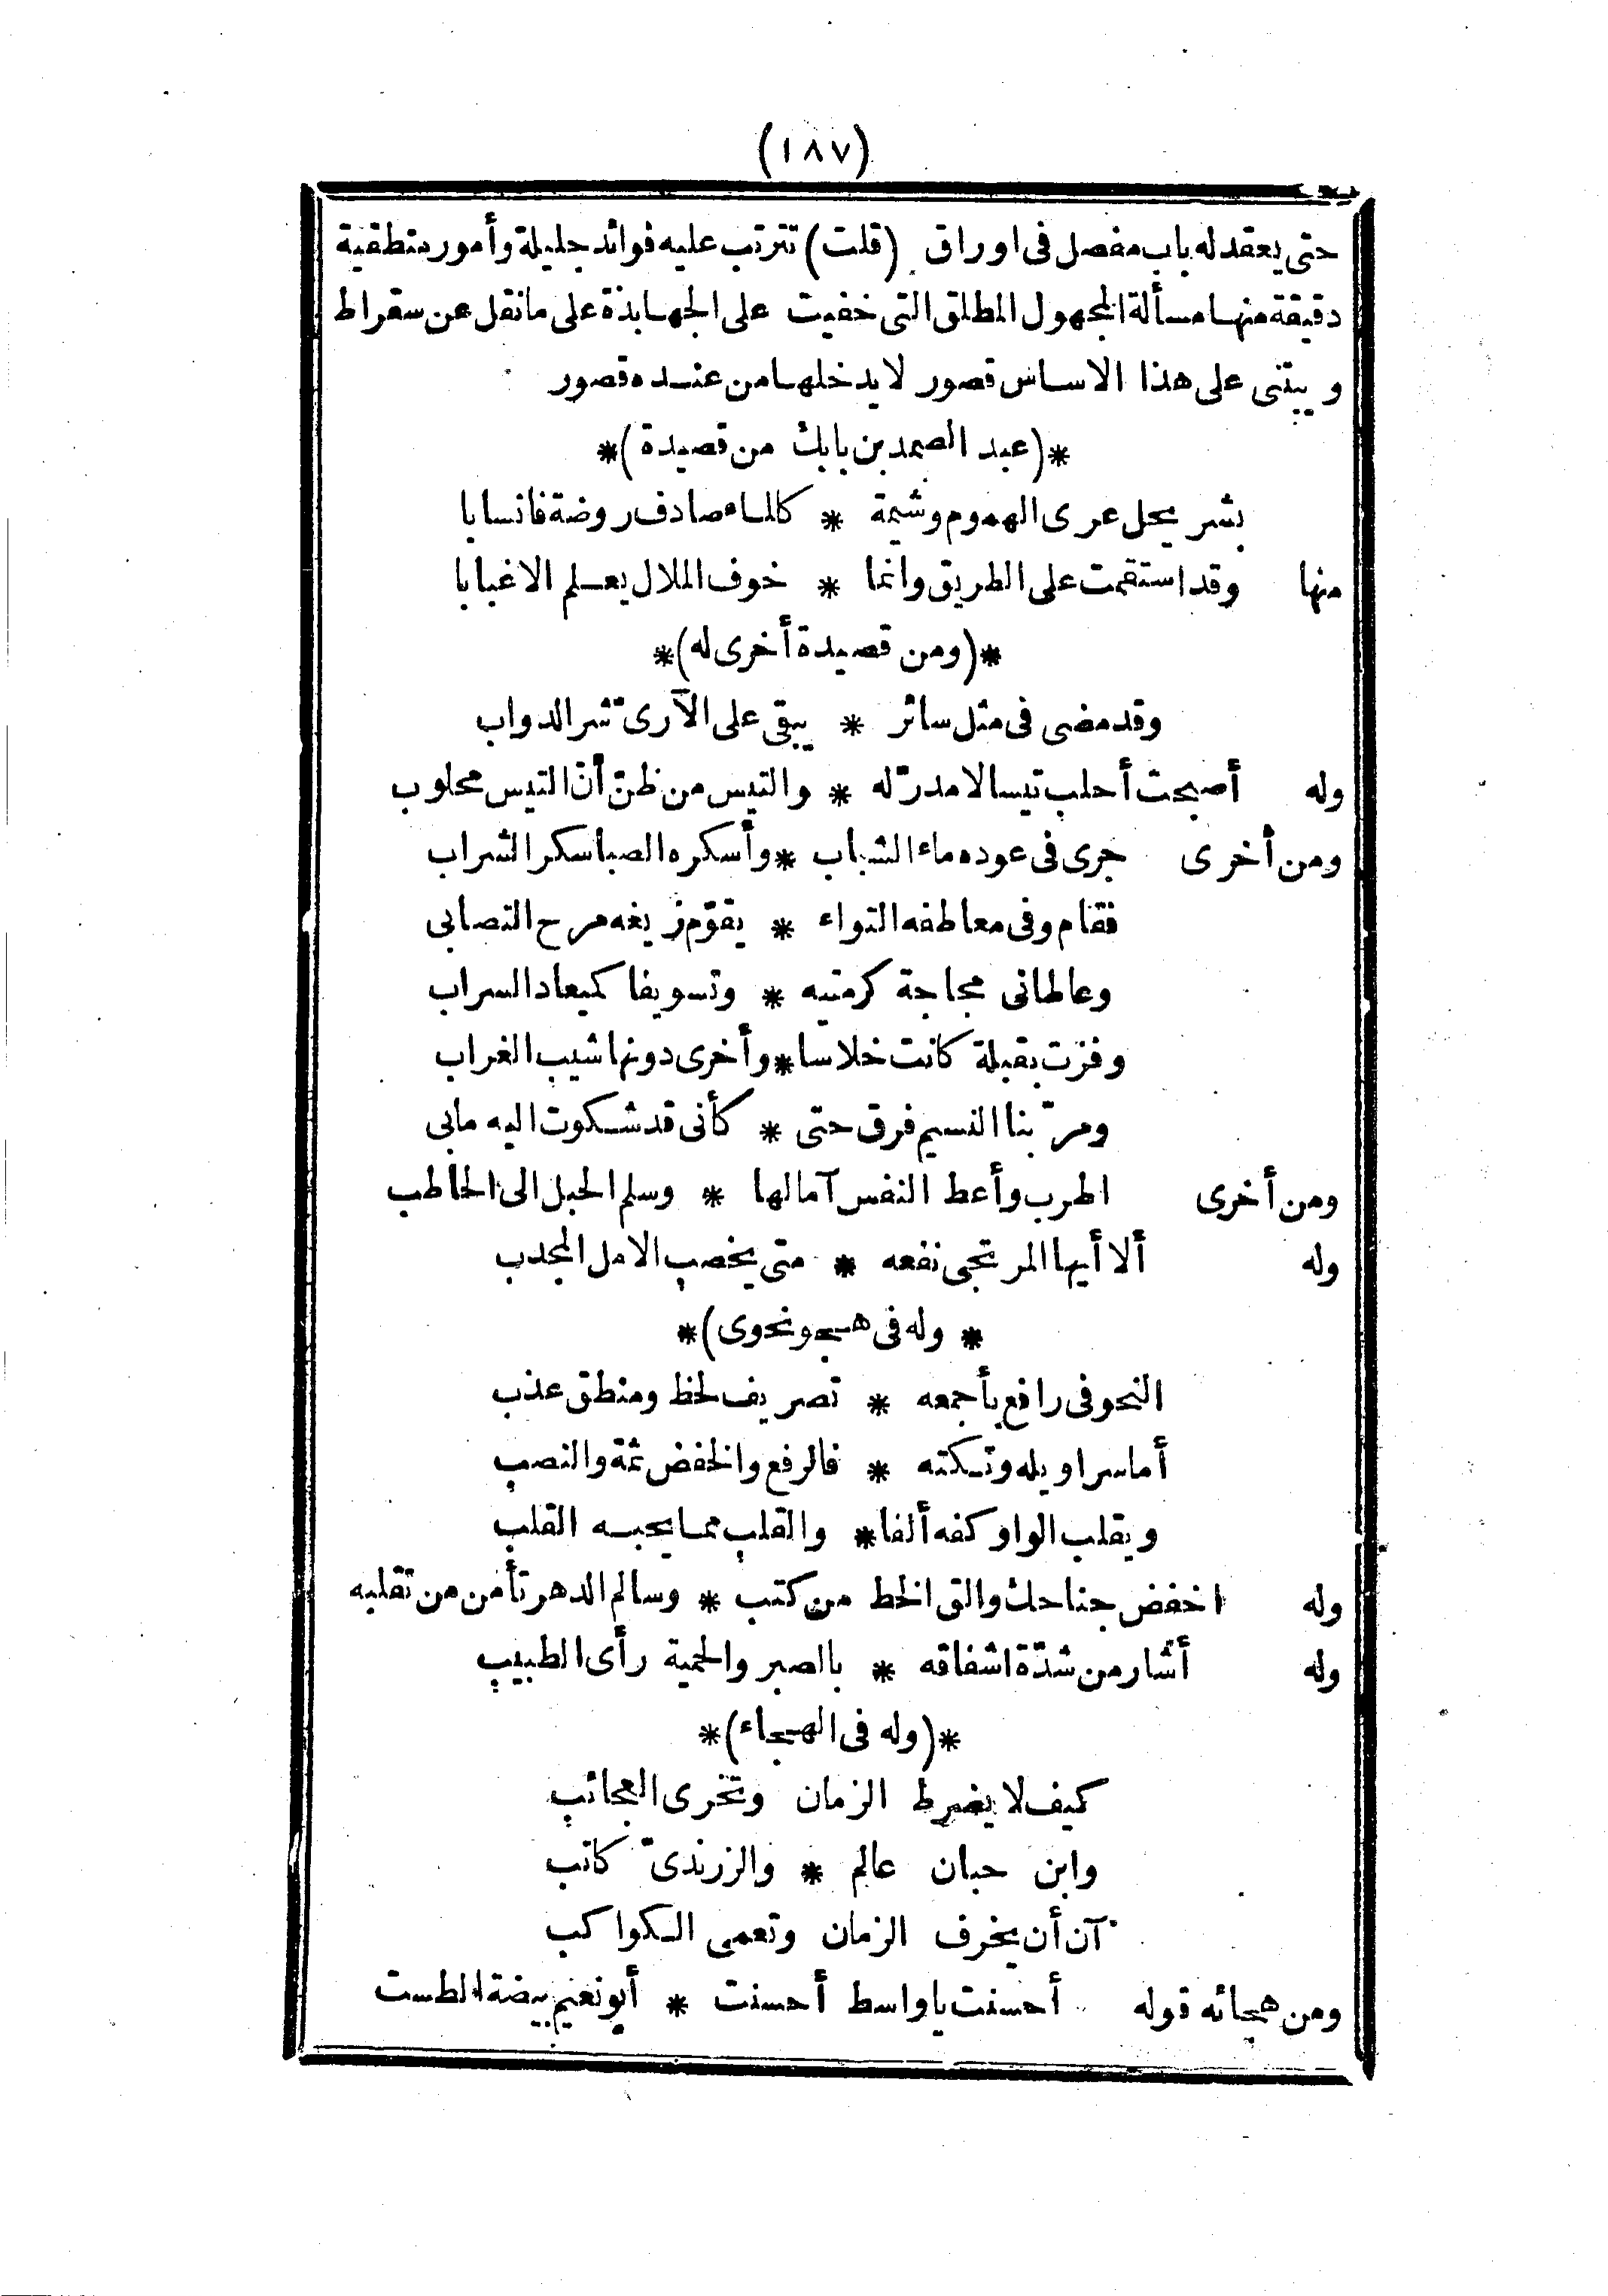 (١٨٧)
حتى يعقد له باب مفصل فى اوراق (قلت) تترتب عليه فوائد جليلة وأمور منطقية
دقيقة منها مسألة المجهول المطلق التى خفيت على الجهابذة على ما نقل عن سقراط
ويبتنى على هذا الاساس قصور لا يدخلها من عنده قصور
*(عبد الصمد بن بابك من قصيدة)*
بشر يحل عرى الهموم وشيمة * كالماء صادف روضة فانسابا
منها وقد استقمت على الطريق وانما * خوف الملال يعلم الاغبابا
*(ومن قصيدة أخرى له)*
وقد مضى فى مثل سائر * يبقى على الآرىّ شر الدواب
وله أصبحت أحلب تيسا لا مدرّ له * والتيس من ظنّ أنّ التيس محلوب
ومن أخرى جرى فى عوده ماء الشباب * وأسكره الصبا سكر الشراب
فقام وفى معاطفه التواء * يقوّم زيغه مرح التصابى
وعاطانى مجاجة كرمتيه * وتسويفا كميعاد السراب
وفزت بقبلة كانت خلاسا * وأخرى دونها شيب الغراب
ومرّ بنا النسيم فرق حتى * كأنى قد شكوت اليه مابى
ومن أخرى اطرب وأعط النفس آمالها * وسلم الحبل الى الحاطب
وله ألا أيها المرتجى نفعه * متى يخصب الامل المجدب
* وله فى هجو نحوى)*
النحو فى رافع بأجمعه * تصريف لحظ ومنطق عذب
أما سراويله وتكته * فالرفع والخفض ثمة والنصب
ويقلب الواو كفه ألفا * والقلب مما يحبه القلب
وله اخفض جناحك والق الخط من كتب * وسالم الدهر تأمن من تقلبه
وله أشار من شدّة اشفاقه * بالصبر والحمية رأى الطبيب
*(وله فى الهجاء)*
كيف لا يضرط الزمان وتخرى العجائب
وابن حبان عالم * والزرندىّ كاتب
آن أن يخرف الزمان وتعمى الكواكب
ومن هجائه قوله أحسنت يا واسط أحسنت * أبو نعيم بيضة الطست